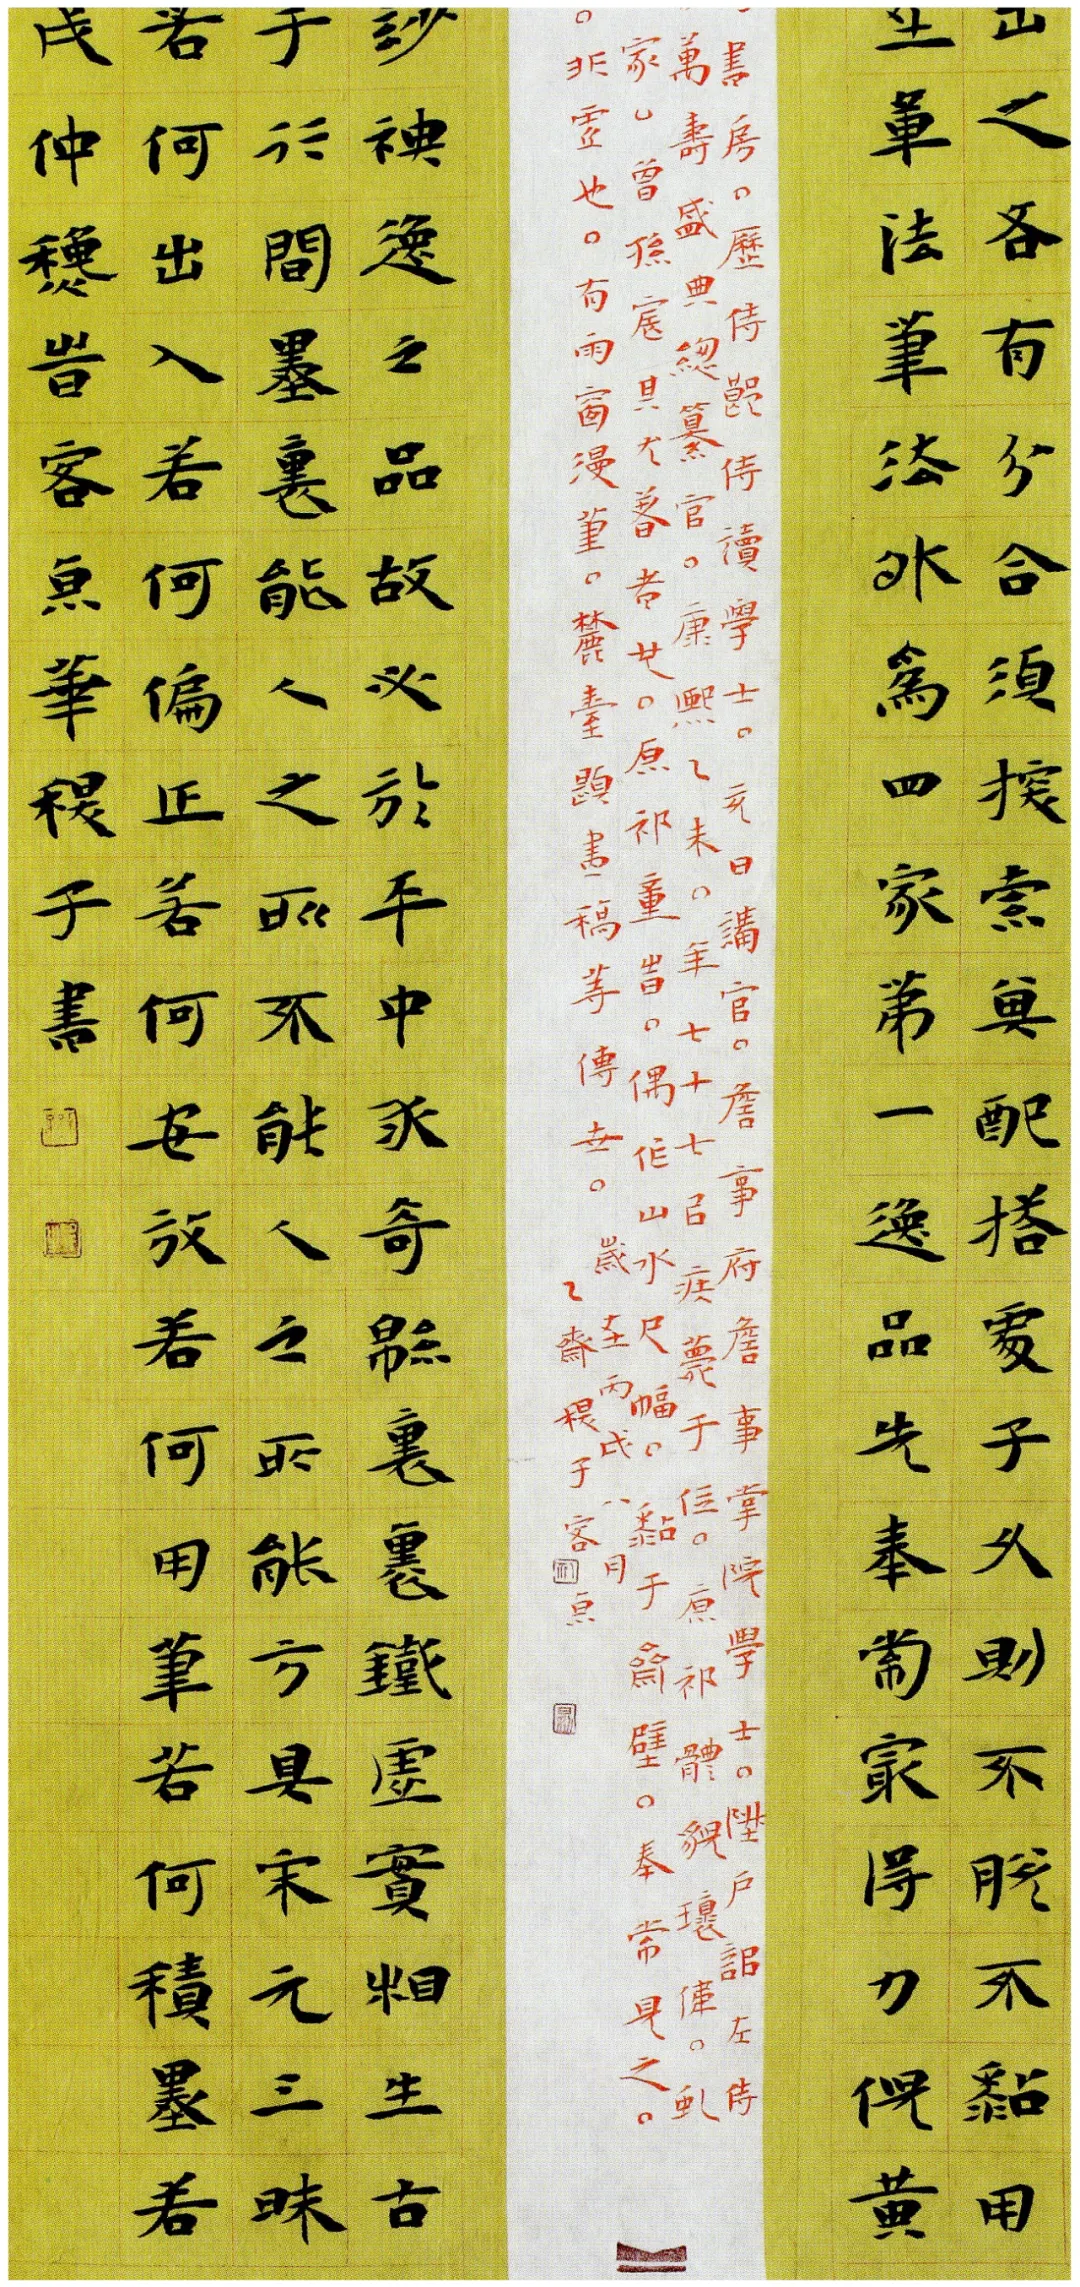 出之各有分合須探索其配搭處子久則不脫不黏用
立筆法筆法外為四家第一逸品先奉常最得力倪黃
書房。歷侍郎侍讀學士。充日講官。詹事府詹事掌院學士。陞戶部左侍
萬壽盛典總纂官。康熙乙未。年七十七㠯疾薨于位。原祁體貌瓌偉。虬
家。曾孫宸其尤著者也。原祁童時。偶作山水尺幅。黏于齋壁。奉常見之。
。非虛也。有雨窗漫筆。麓臺題畫稿等傳世。歲在丙戌八月
乙齋稷子客京
玅神逸之品故必於平中求奇緜裏裹鐵虛實相生古
于行間墨裏能人之所不能人之所能方具宋元三昧
若何出入若何偏正若何安放若何用筆若何積墨若
戌仲龝時客京華稷子書